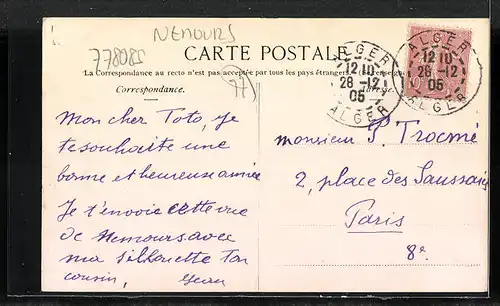 NEMOURS
778085
CARTE POSTALE
La Correspondance au recto n'est pas acceptée par tous les pays étrangers. (Se renseigner
Correspondance.
(77)
Adresse
ALGER
12 10
28 -12
05
ALGER
ALGER
12 10
28 -12
05
ALGER
Mon cher Toto, je
te souhaite une
bonne et heureuse année
Je t'envoie cette vue
de Nemours avec
ma silhouette Ton
cousin, Jean
Monsieur P. Trocmé
2, place des Saussaies
Paris
8e